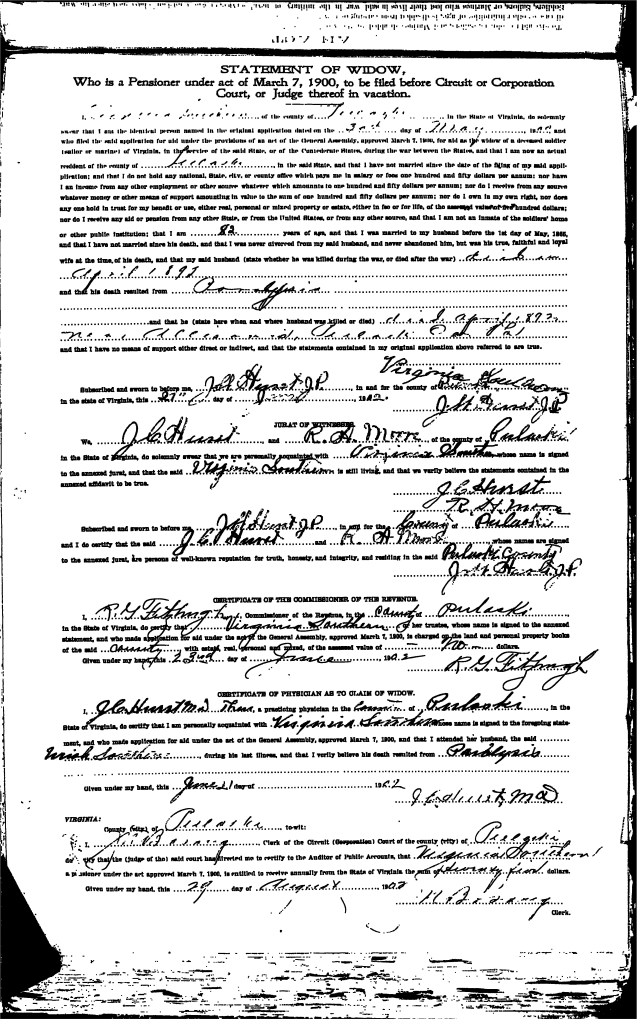 STATEMENT OF WIDOW,
Who is a Pensioner under act of March 7, 1900, to be filed before Circuit or Corporation
Court, or Judge thereof in vacation.
I, of the county of Pulaski in the State of Virginia, do solemnly
swear that I am the identical person named in the original application dated on the day of May and
who filed the said application for aid under the provisions of an act of the General Assembly, approved March 7, 1900, for aid as the widow of a deceased soldier
(sailor or marine) of Virginia, in the service of the said State, or of the Confederate States, during the war between the States, and that I am now an actual
resident of the county of Pulaski in the said State, and that I have not married since the date of the filing of my said appli-
cation; and that I do not hold any national, State, city, or county office which pays me in salary or fees one hundred and fifty dollars per annum; nor have
I an income from any other employment or other source whatever which amounts to one hundred and fifty dollars per annum; nor do I receive from any source
whatever money or other means of support amounting in value to the sum of one hundred and fifty dollars per annum; nor do I own in my own right, nor does
any one hold in trust for my benefit or use, either real, personal or mixed property or estate, either in fee or for life, of the assessed value of hundred dollars;
nor do I receive any aid or pension from any other State, or from the United States, or from any other source, and that I am not an inmate of the soldiers' home
or other public institution; that I am 82 years of age, and that I was married to my husband before the 1st day of May, 1866,
and that I have not married since his death, and that I was never divorced from my said husband, and never abandoned him, but was his true, faithful and loyal
wife at the time of his death, and that my said husband (state whether he was killed during the war, or died after the war) died in
April 1892
and that his death resulted from
and that he (state here when and where husband was killed or died) died April 1892
near Pulaski Co
and that I have no means of support either direct or indirect, and that the statements contained in my original application above referred to are true.
Virginia
Subscribed and sworn to before me, J H Hurst J.P. in and for the county of
in the State of Virginia, this 27 day of 1902.
J H Hurst J.P.
JURAT OF WITNESSES.
We, J C Hurst and R. H. Moore of the county of Pulaski
in the State of Virginia, do solemnly swear that we are personally acquainted with Virginia whose name is signed
to the annexed jurat, and that the said Virginia Southern is still living, and that we verily believe the statements contained in the
annexed affidavit to be true.
J C Hurst
R. H. Moore
Subscribed and sworn to before me, J H Hurst J.P. in and for the County of Pulaski
and I do certify that the said J. C. Hurst and R H Moore whose names are signed
to the annexed jurat, are persons of well-known reputation for truth, honesty, and integrity, and residing in the said Pulaski County
J H Hurst J.P.
CERTIFICATE OF THE COMMISSIONER OF THE REVENUE.
I, R G Fitzhugh, Commissioner of the Revenue, in the County of Pulaski
in the State of Virginia, do certify that Virginia Southern or her trustee, whose name is signed to the annexed
statement, and who made application for aid under the act of the General Assembly, approved March 7, 1900, is charged on the land and personal property books
of the said County with estate, real, personal and mixed, of the assessed value of no dollars.
Given under my hand, this 23rd day of June 1902
R G Fitzhugh
CERTIFICATE OF PHYSICIAN AS TO CLAIM OF WIDOW.
I, J C Hurst MD a practicing physician in the of Pulaski, in the
State of Virginia, do certify that I am personally acquainted with Virginia Southern whose name is signed to the foregoing state-
ment, and who made application for aid under the act of the General Assembly, approved March 7, 1900, and that I attended her husband, the said
Southern, during his last illness, and that I verily believe his death resulted from
Given under my hand, this June day of 1902
J C Hurst, MD
VIRGINIA:
County (city) of Pulaski to-wit:
I, Clerk of the Circuit (Corporation) Court of the county (city) of Pulaski
do certify that the (Judge of the) said court has directed me to certify to the Auditor of Public Accounts, that Virginia Southern
a pensioner under the act approved March 7, 1900, is entitled to receive annually from the State of Virginia the sum of dollars.
Given under my hand, this 29 day of August 1902
Clerk.